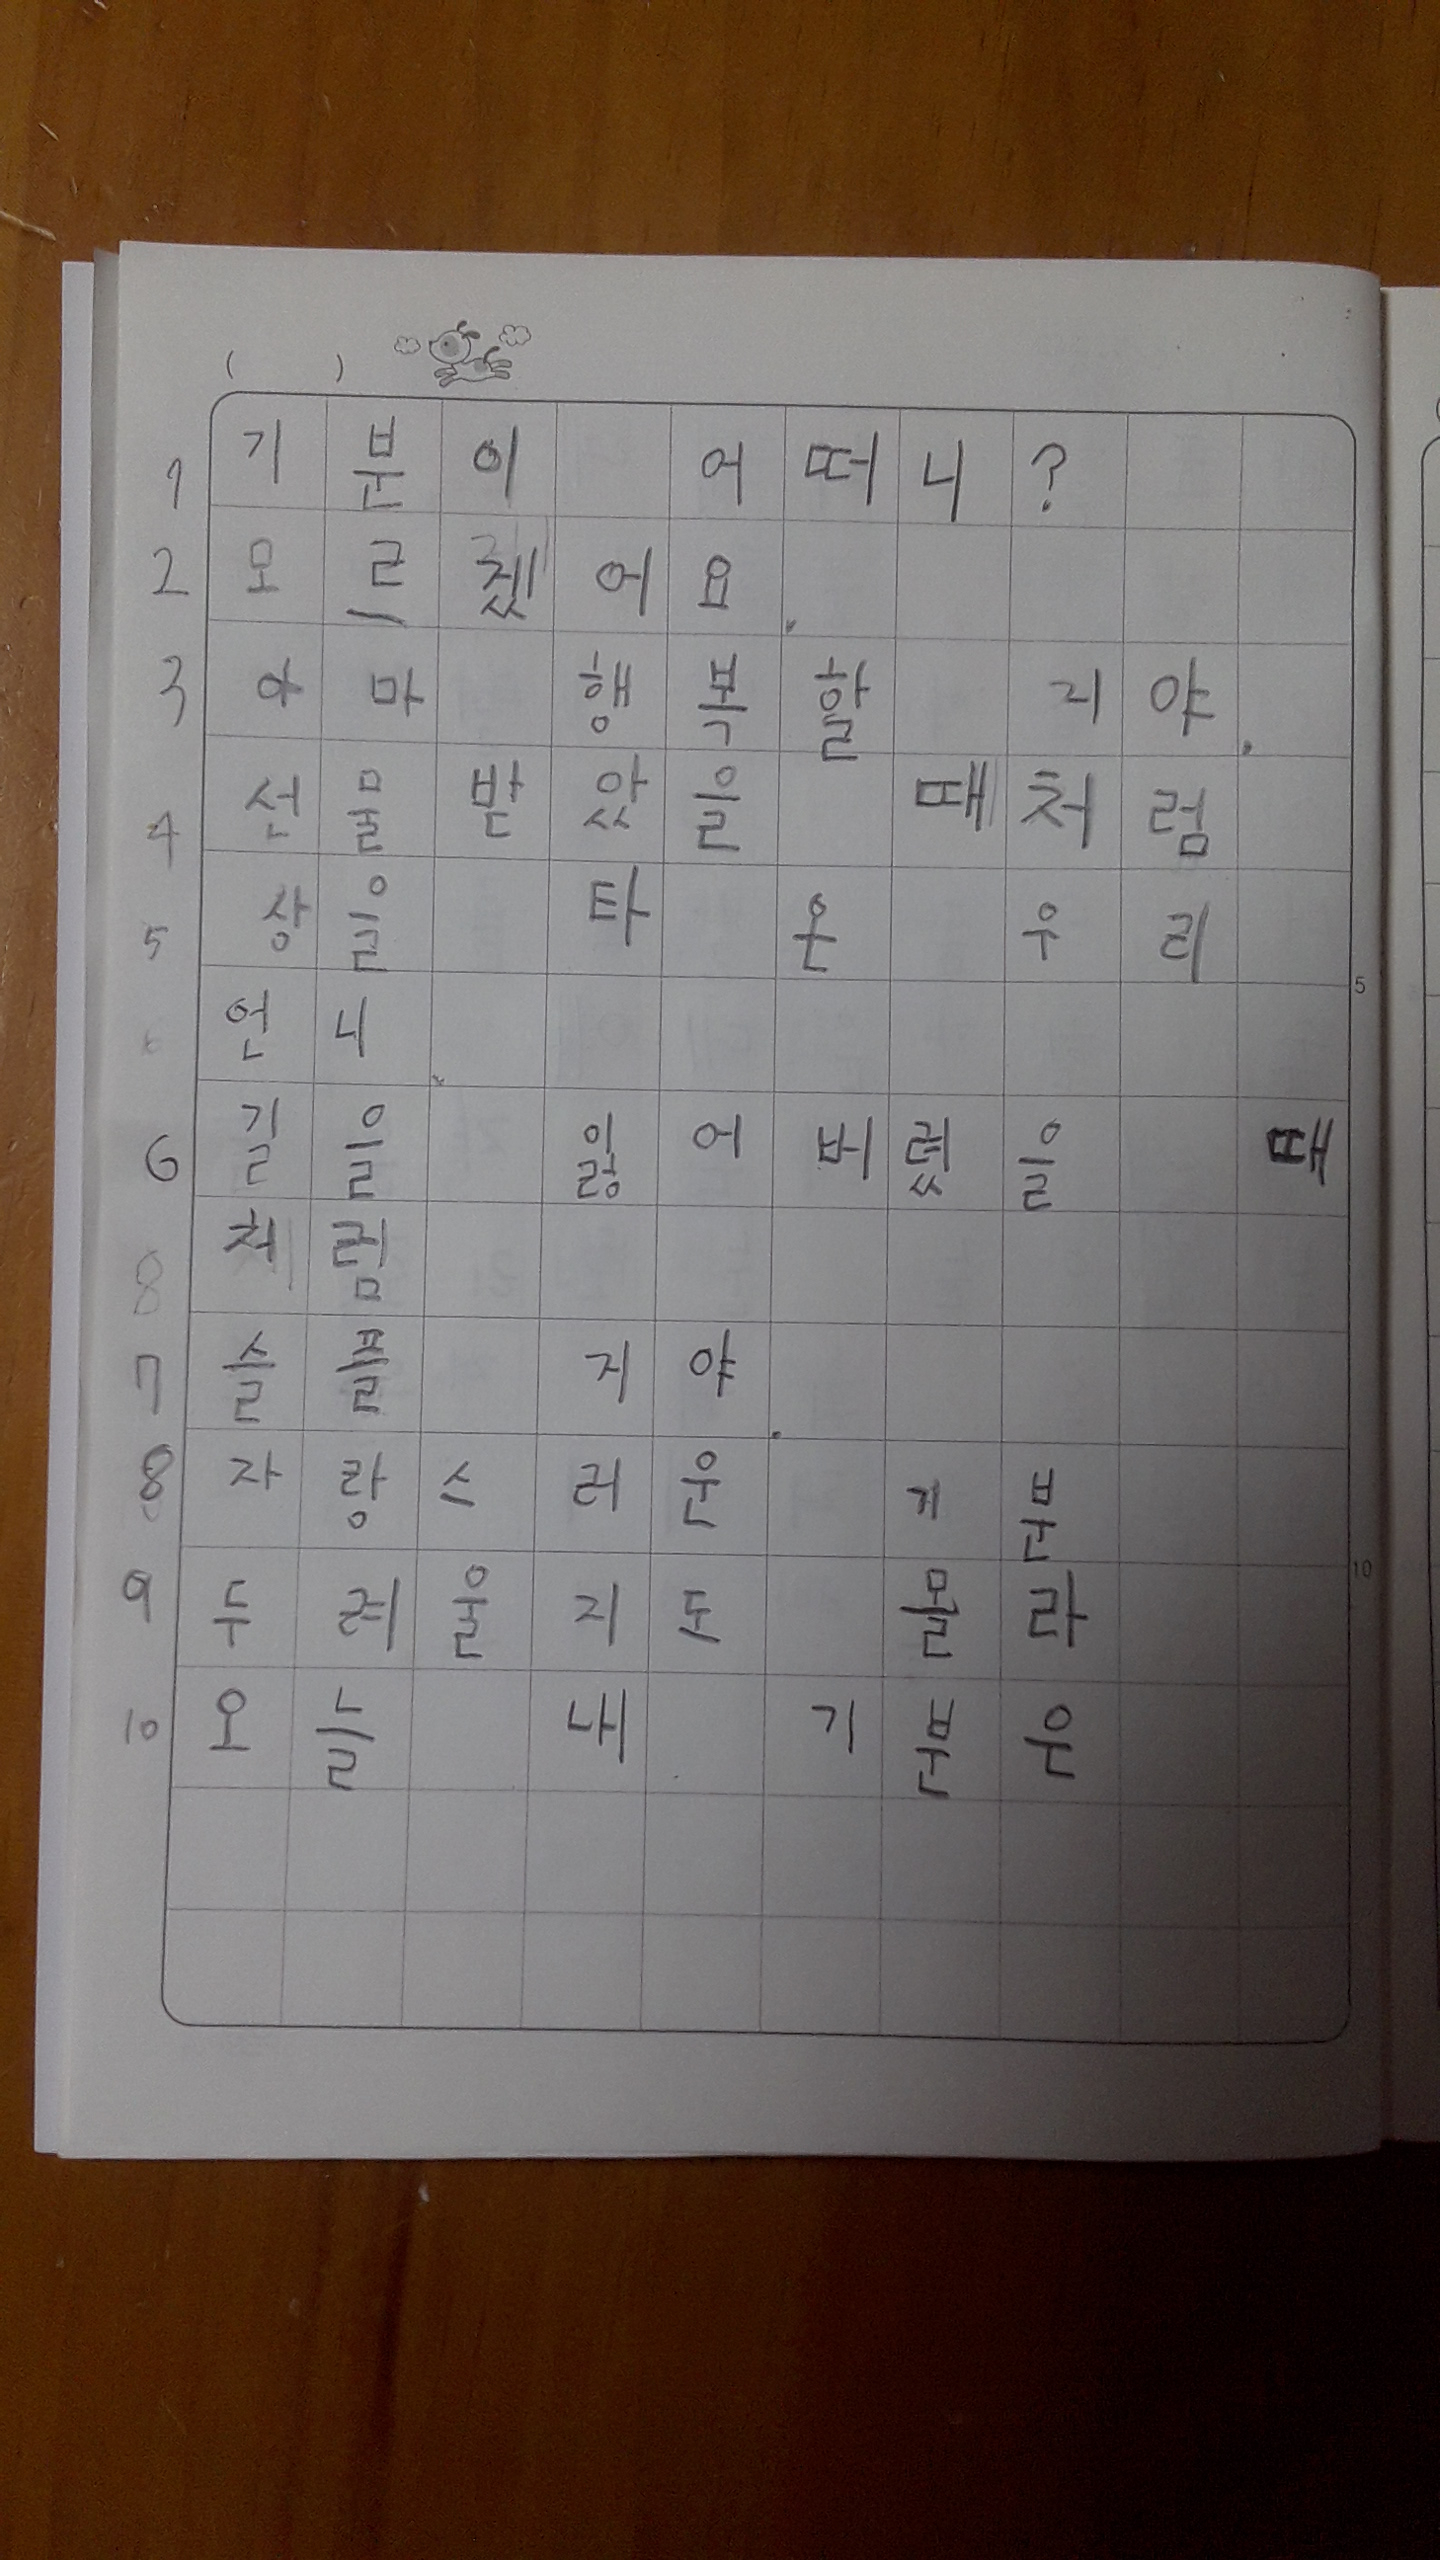 (    )
1 기분이 어떠니?
2 모르겠어요.
3 아마 행복할 지야.
4 선물받았을 때처럼
5 상을 타 온 우리
언니.
6 길을 잃어버렸을 때
8 처럼
7 슬플 지야.
8 자랑스러운 기분
9 두려울지도 몰라
10 오늘 내 기분은
5
10